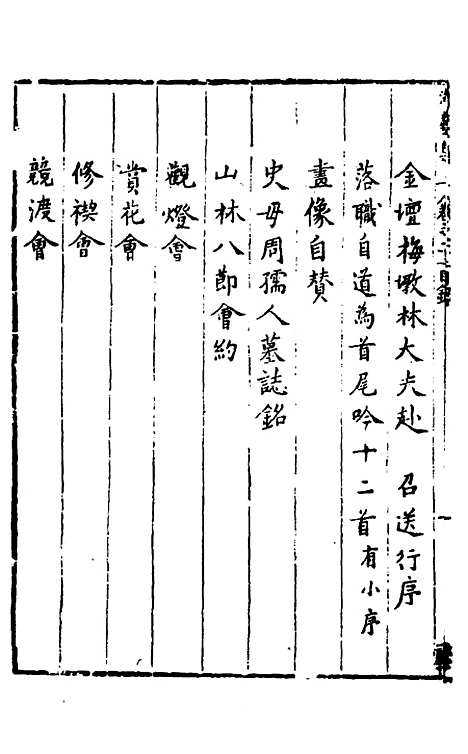 金壇梅墩林大夫赴　召送行序
落職自道為首尾吟十二首有小序
畫像自贊
史母周孺人墓誌銘
山林八節會約
觀燈會
賞花會
修禊會
競渡會